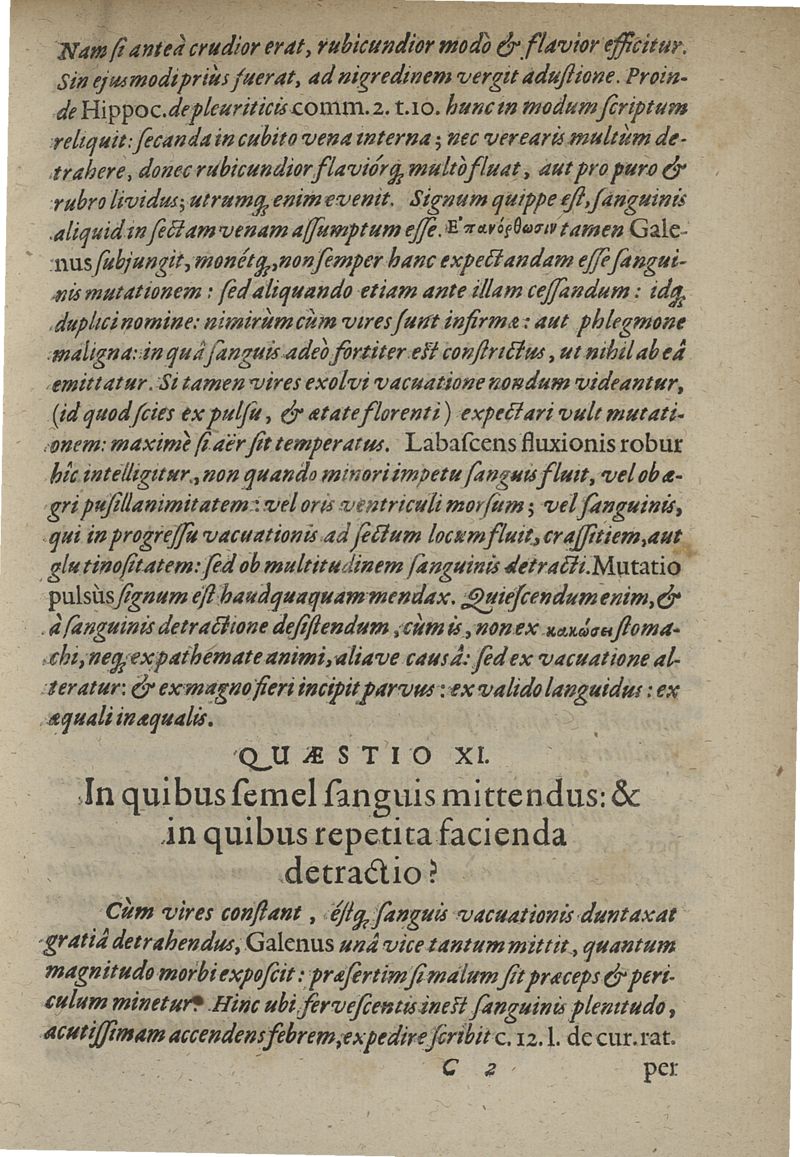 Nam ſi anteà crudior erat, rubicundior modò & flavior efficitur.
Sin ejusmodi priùs fuerat, ad nigredinem vergit aduſtione. Proin-
de Hippoc. de pleuriticis comm. 2. t. 10. hunc in modum ſcriptum
reliquit: ſecanda in cubito vena interna; nec verearis multùm de-
trahere, donec rubicundior flaviórq́; multò fluat, aut pro puro &
rubro lividus; utrumq; enim evenit. Signum quippe eſt, ſanguinis
aliquid in ſectam venam aſſumptum eſſe. Ἐπανόρθωσιν tamen Gale-
nus ſubjungit, monétq́;, non ſemper hanc expectandam eſſe ſangui-
nis mutationem: ſed aliquando etiam ante illam ceſſandum: idq́;
duplici nomine: nimirùm cùm vires ſunt infirmæ: aut phlegmone
maligna: in quâ ſanguis adeò fortiter eſt conſtrictus, ut nihil ab eâ
emittatur. Si tamen vires exolvi vacuatione nondum videantur,
(id quod ſcies ex pulſu, & ætate florenti) expectari vult mutati-
onem: maximè ſi aër ſit temperatus. Labaſcens fluxionis robur
hîc intelligitur, non quando minori impetu ſanguis fluit, vel ob æ-
gri puſillanimitatem: vel oris ventriculi morſum; vel ſanguinis,
qui in progreſſu vacuationis ad ſectum locum fluit, craſſitiem, aut
glutinoſitatem: ſed ob multitudinem ſanguinis detracti. Mutatio
pulsûs ſignum eſt haudquaquam mendax. Quieſcendum enim, &
à ſanguinis detractione deſiſtendum, cùm is, non ex κακώσῃ ſtoma-
chi, neq; ex pathemate animi, aliave causâ: ſed ex vacuatione al-
teratur: & ex magno fieri incipit parvus: ex valido languidus: ex
æquali inæqualis.
QUÆSTIO XI.
In quibus ſemel ſanguis mittendus: &
in quibus repetita facienda
detractio?
Cùm vires conſtant, éſtq́; ſanguis vacuationis duntaxat
gratiâ detrahendus, Galenus unâ vice tantum mittit, quantum
magnitudo morbi expoſcit: præſertim ſi malum ſit præceps & peri-
culum minetur. Hinc ubi ferveſcentis ineſt ſanguinis plenitudo,
acutiſſimam accendens febrem, expedire ſcribit c. 12. l. de cur. rat.
C 2 per